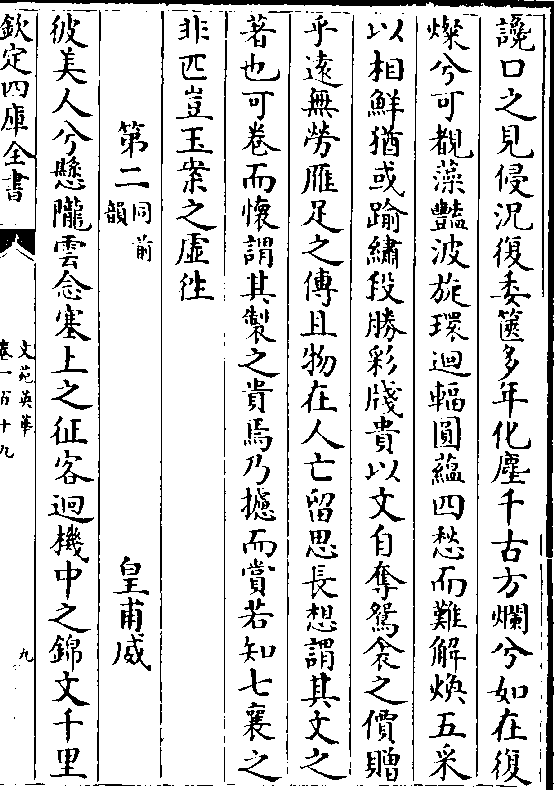 讒口之見侵況復委篋多年化塵千古方爛兮如在復
燦兮可觀藻豔波旋環迴輻圓蘊四愁而難解煥五采
以相鮮猶或踰繡段勝彩牋貴以文自奪鴛衾之價贈
乎遠無勞雁足之傳且物在人亡留思長想謂其文之
著也可卷而懷謂其製之貴焉乃摅而賞若知七襄之
非匹豈玉案之虛徃
第二 同前韻 皇甫威
彼美人兮懸隴雲念塞上之征客迴機中之錦文千里
欽定四庫全書
文苑英華
卷一百十九
九